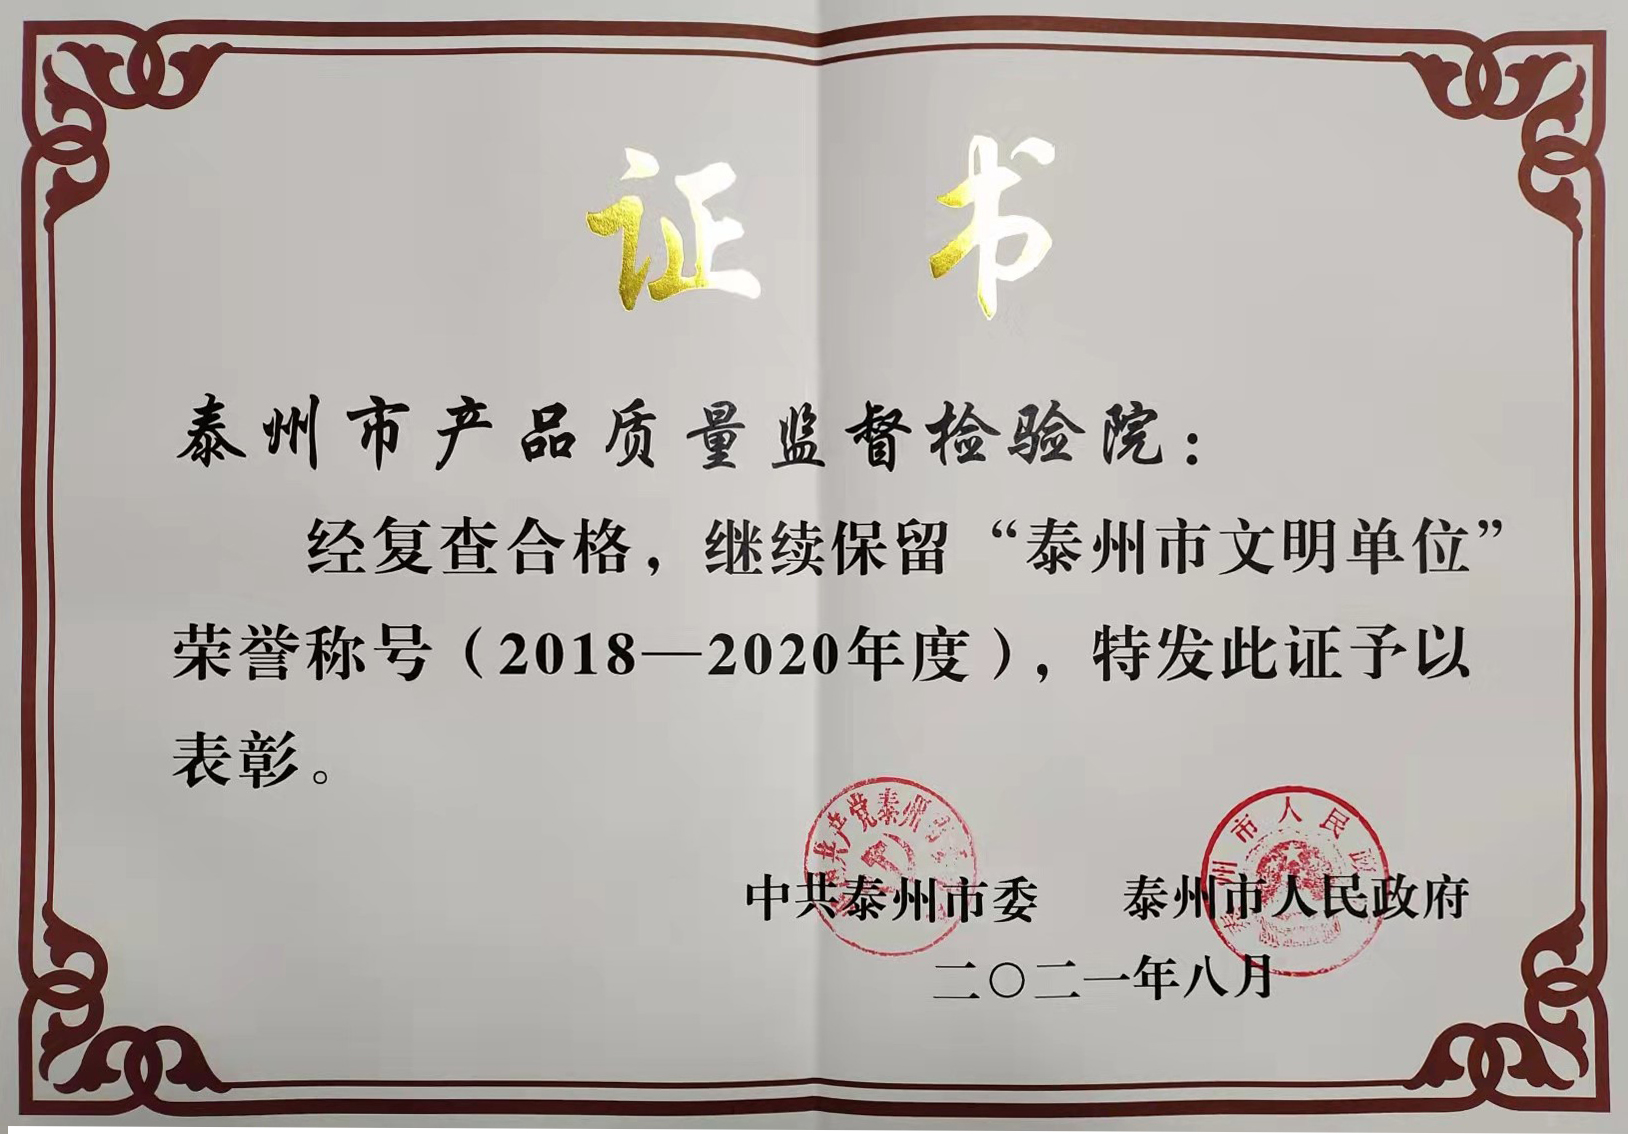 证书
泰州市产品质量监督检验院：
经复查合格，继续保留“泰州市文明单位”
荣誉称号（2018—2020年度），特发此证予以
表彰。
中共泰州市委 泰州市人民政府
二〇二一年八月
共产党泰州市
州市人民政